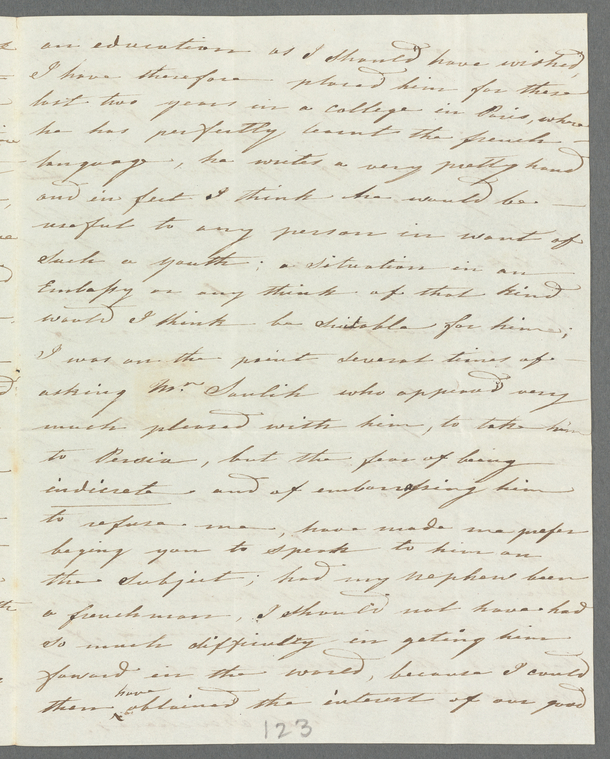 an education as I should have wished,
I have therefore placed him for these
last two years in a college in Paris, where
he has perfectly learnt the french
language, he writes a very pretty hand
and in fect I think he would be
useful to any person in want of
such a youth; a situation in an
Embassy or any think of that kind
would I think be suitable for him;
I was on the point several times of
asking Mr. who appeard very
much pleased with him, to take him
to Persia, but the fear of being
indiscrete and of embarrassing him
to refuse me, have made me prefer
beging you to speak to him on
the subject; had my nephew been
a frenchman, I should not have had
so much difficulty in geting him
foward in the world, because I could
then have obtained the interest of our good
123